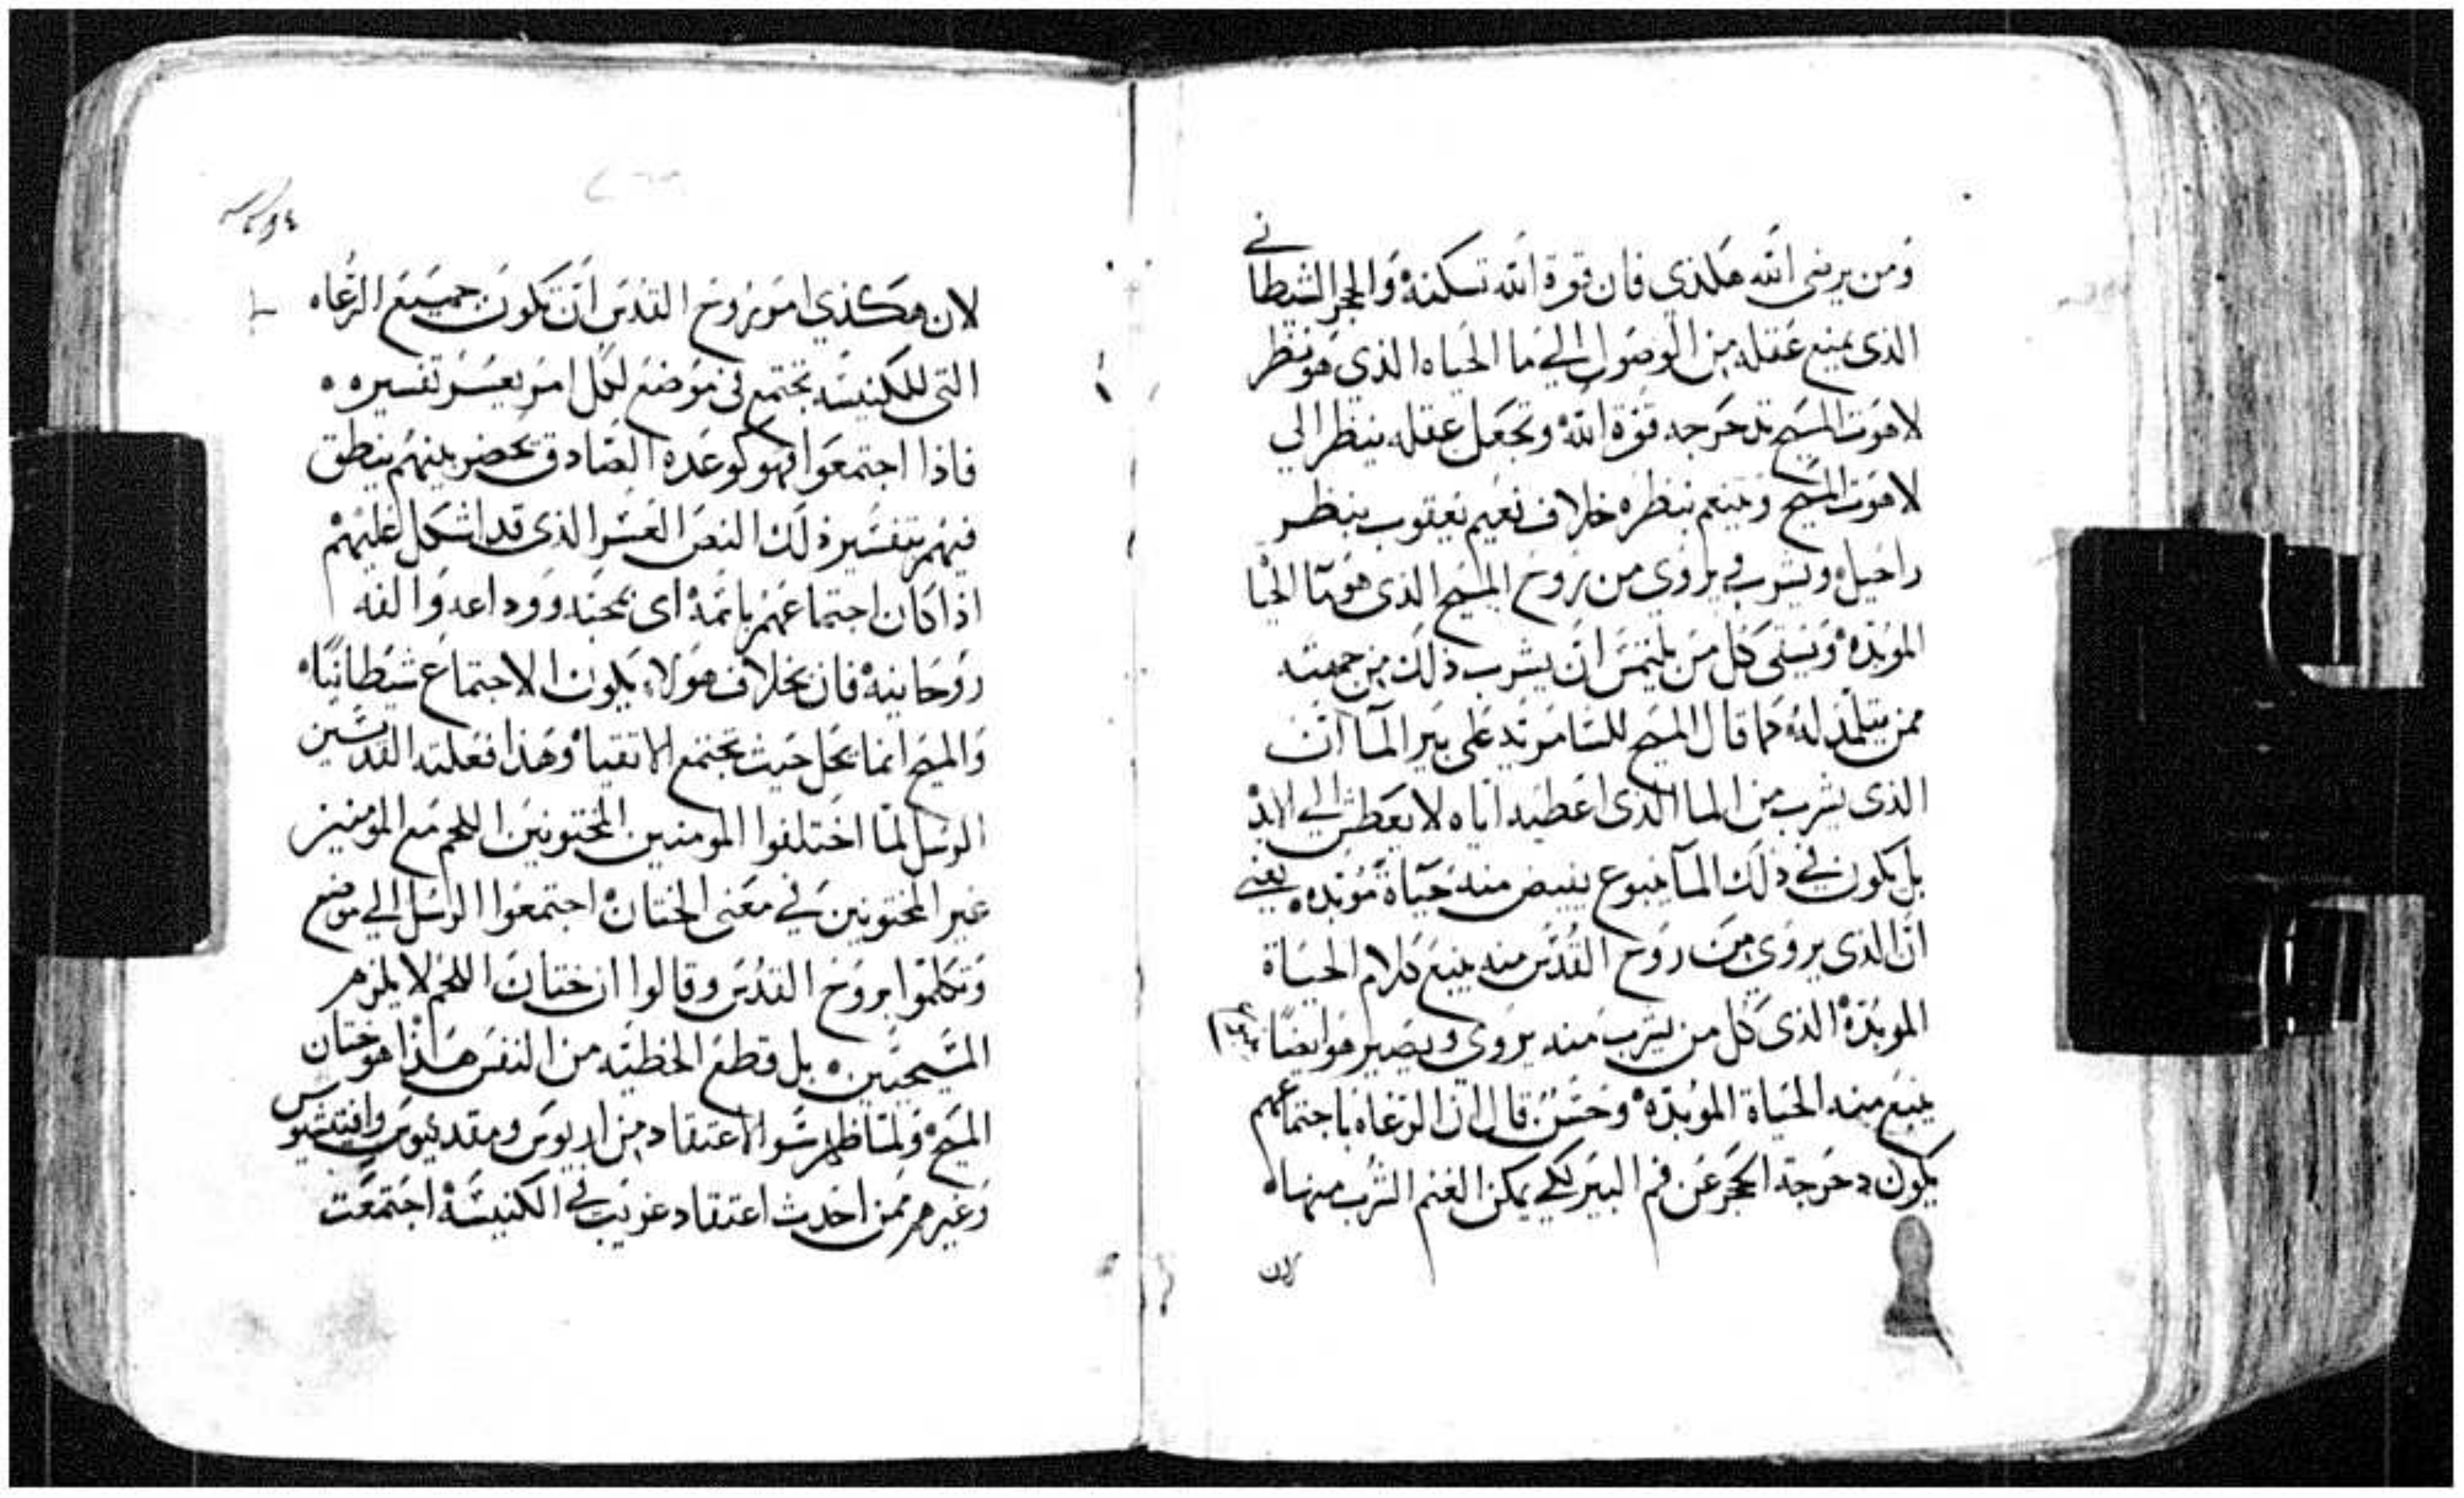 ومن يرضى الله هكذي فان قوة الله تسكنه والحجر الشيطاني
الذى يمنع عقله من الوصول الي ما الحياه الذي هو نظر
لاهوت المسيح تدحرجه قوة الله وتجعل عقله ينظر الى
لاهوت المسيح وينعم بنظره خلاف نعيم يعقوب بنظر
راحيل ويشرب ويروى من روح المسيح الذى هو ما الحيا
الموبده ويسقى كل من يلتمس ان يشرب ذلك من جهته
ممن يتلمذ له كما قال المسيح للسامريه على بير الما ان
الذى يشرب من الما الذى اعطيه اياه لا يعطش الي الابد
بل يكون في ذلك الما ينبوع يفيض منه حياة موبده يعني
ان الذى يروى من روح القدس منه ينبع كلام الحياة
الموبدة الذى كل من يشرب منه يروى ويصير هو ايضا
ينبع منه الحياة الموبده وحسن قال ان الرعاه باجتماعهم
يكون دحرجة الحجر عن فم البير لكي يمكن الغنم الشرب منها
لان
لان هكذي امر روح القدس ان تكون جميع الرعاه
التى للكنيسه تجتمع فى موضع لكل امر يعسر تفسيره
فاذا اجتمعوا فهو كوعده الصادق يحضر بينهم ينطق
فيهم بتفسير ذلك النص العسر الذى قد اشكل عليهم
اذا كان اجتماعهم باسمه اى بمحبه ووداعه والفه
روحانيه فان بخلاف هولاء يكون الاجتماع شيطانيا
والمسيح انما يحل حيث تجتمع الاتقيا وهذا فعلته القديسين
الرسل لما اختلفوا المومنين المختونين اللحم مع المومنين
غير المختونين في معنى الختان اجتمعوا الرسل الي موضع
وتكلموا بروح القدس وقالوا ان ختان اللحم لا يلزم
المسيحيين بل قطع الخطيه من النفس هذا هو ختان
المسيح ولما ظهر سو الاعتقاد من اريوس ومقدنيوس
وغيرهم ممن احدث اعتقاد غريب في الكنيسة اجتمعت